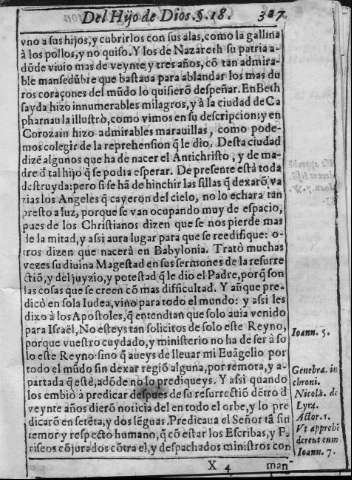 Del Hijo de Dios.§.18. 327
vno a sus hijos, y cubrirlos con sus alas, como la gallina
à los pollos, y no quiso. Y los de Nazareth su patria a-
dõde viuio mas de veynte y tres años, cõ tan admira-
ble mansedũbre que bastaua para ablandar los mas du
ros coraçones del mũdo lo quisierõ despeñar. En Beth
sayda hizo innumerables milagros, y à la ciudad de Ca
pharnau la illustrò, como vimos en su descripcion: y en
Corozain hizo admirables marauillas, como pode-
mos colegir de la reprehension q̃ le dio. Desta ciudad
dizẽ algunos que ha de nacer el Antichristo, y de ma-
dre d̃ tal hijo q̃ se podia esperar. De presente està toda
destruyda: pero si se hã de hinchir las sillas q̃ dexarõ va
rias los Angeles q̃ cayeron del cielo, no lo echara tan
presto a luz, porque se van ocupando muy de espacio,
pues de los Christianos dizen que se nos pierde mas
de la mitad, y assi aura lugar para que se reedifique: o-
tros dizen que nacerà en Babylonia. Tratò muchas
vezes su diuina Magestad en sus sermones de la resurre
ctiõ, y del juyzio, y potestad q̃ le dio el Padre, porq̃ son
las cosas que se creen cõ mas difficultad. Y aũque pre-
dicò en sola Iudea, vino para todo el mundo: y assi les
dixo à los Apostoles, q̃ entendian que solo auia venido
para Israël, No esteys tan solicitos de solo este Reyno,
porque vuestro cuydado, y ministerio no ha de ser à so
lo este Reyno sino q̃ aueys de lleuar mi Euãgelio por
todo el mũdo sin dexar regiõ alguna, por remota, y a-
partada q̃ estè, adõde no lo prediqueys. Y assi quando
los embiò à predicar despues de su resurrectiõ dẽtro d̃
veynte años dierõ noticia del en todo el orbe, y lo pre
dicarõ en setẽta, y dos lẽguas. Predicaua el Señor tã sin
temor y respecto humano, q̃ cõ estar los Escribas, y Pa
riseos cõjurados cõtra el, y despachados ministros con
X 4 man
Ioann. 5.
Genebra. in
chroni.
Nicola. de
Lyra.
Actor. 1.
Vt apprehẽ
derent eum
Ioann. 7.